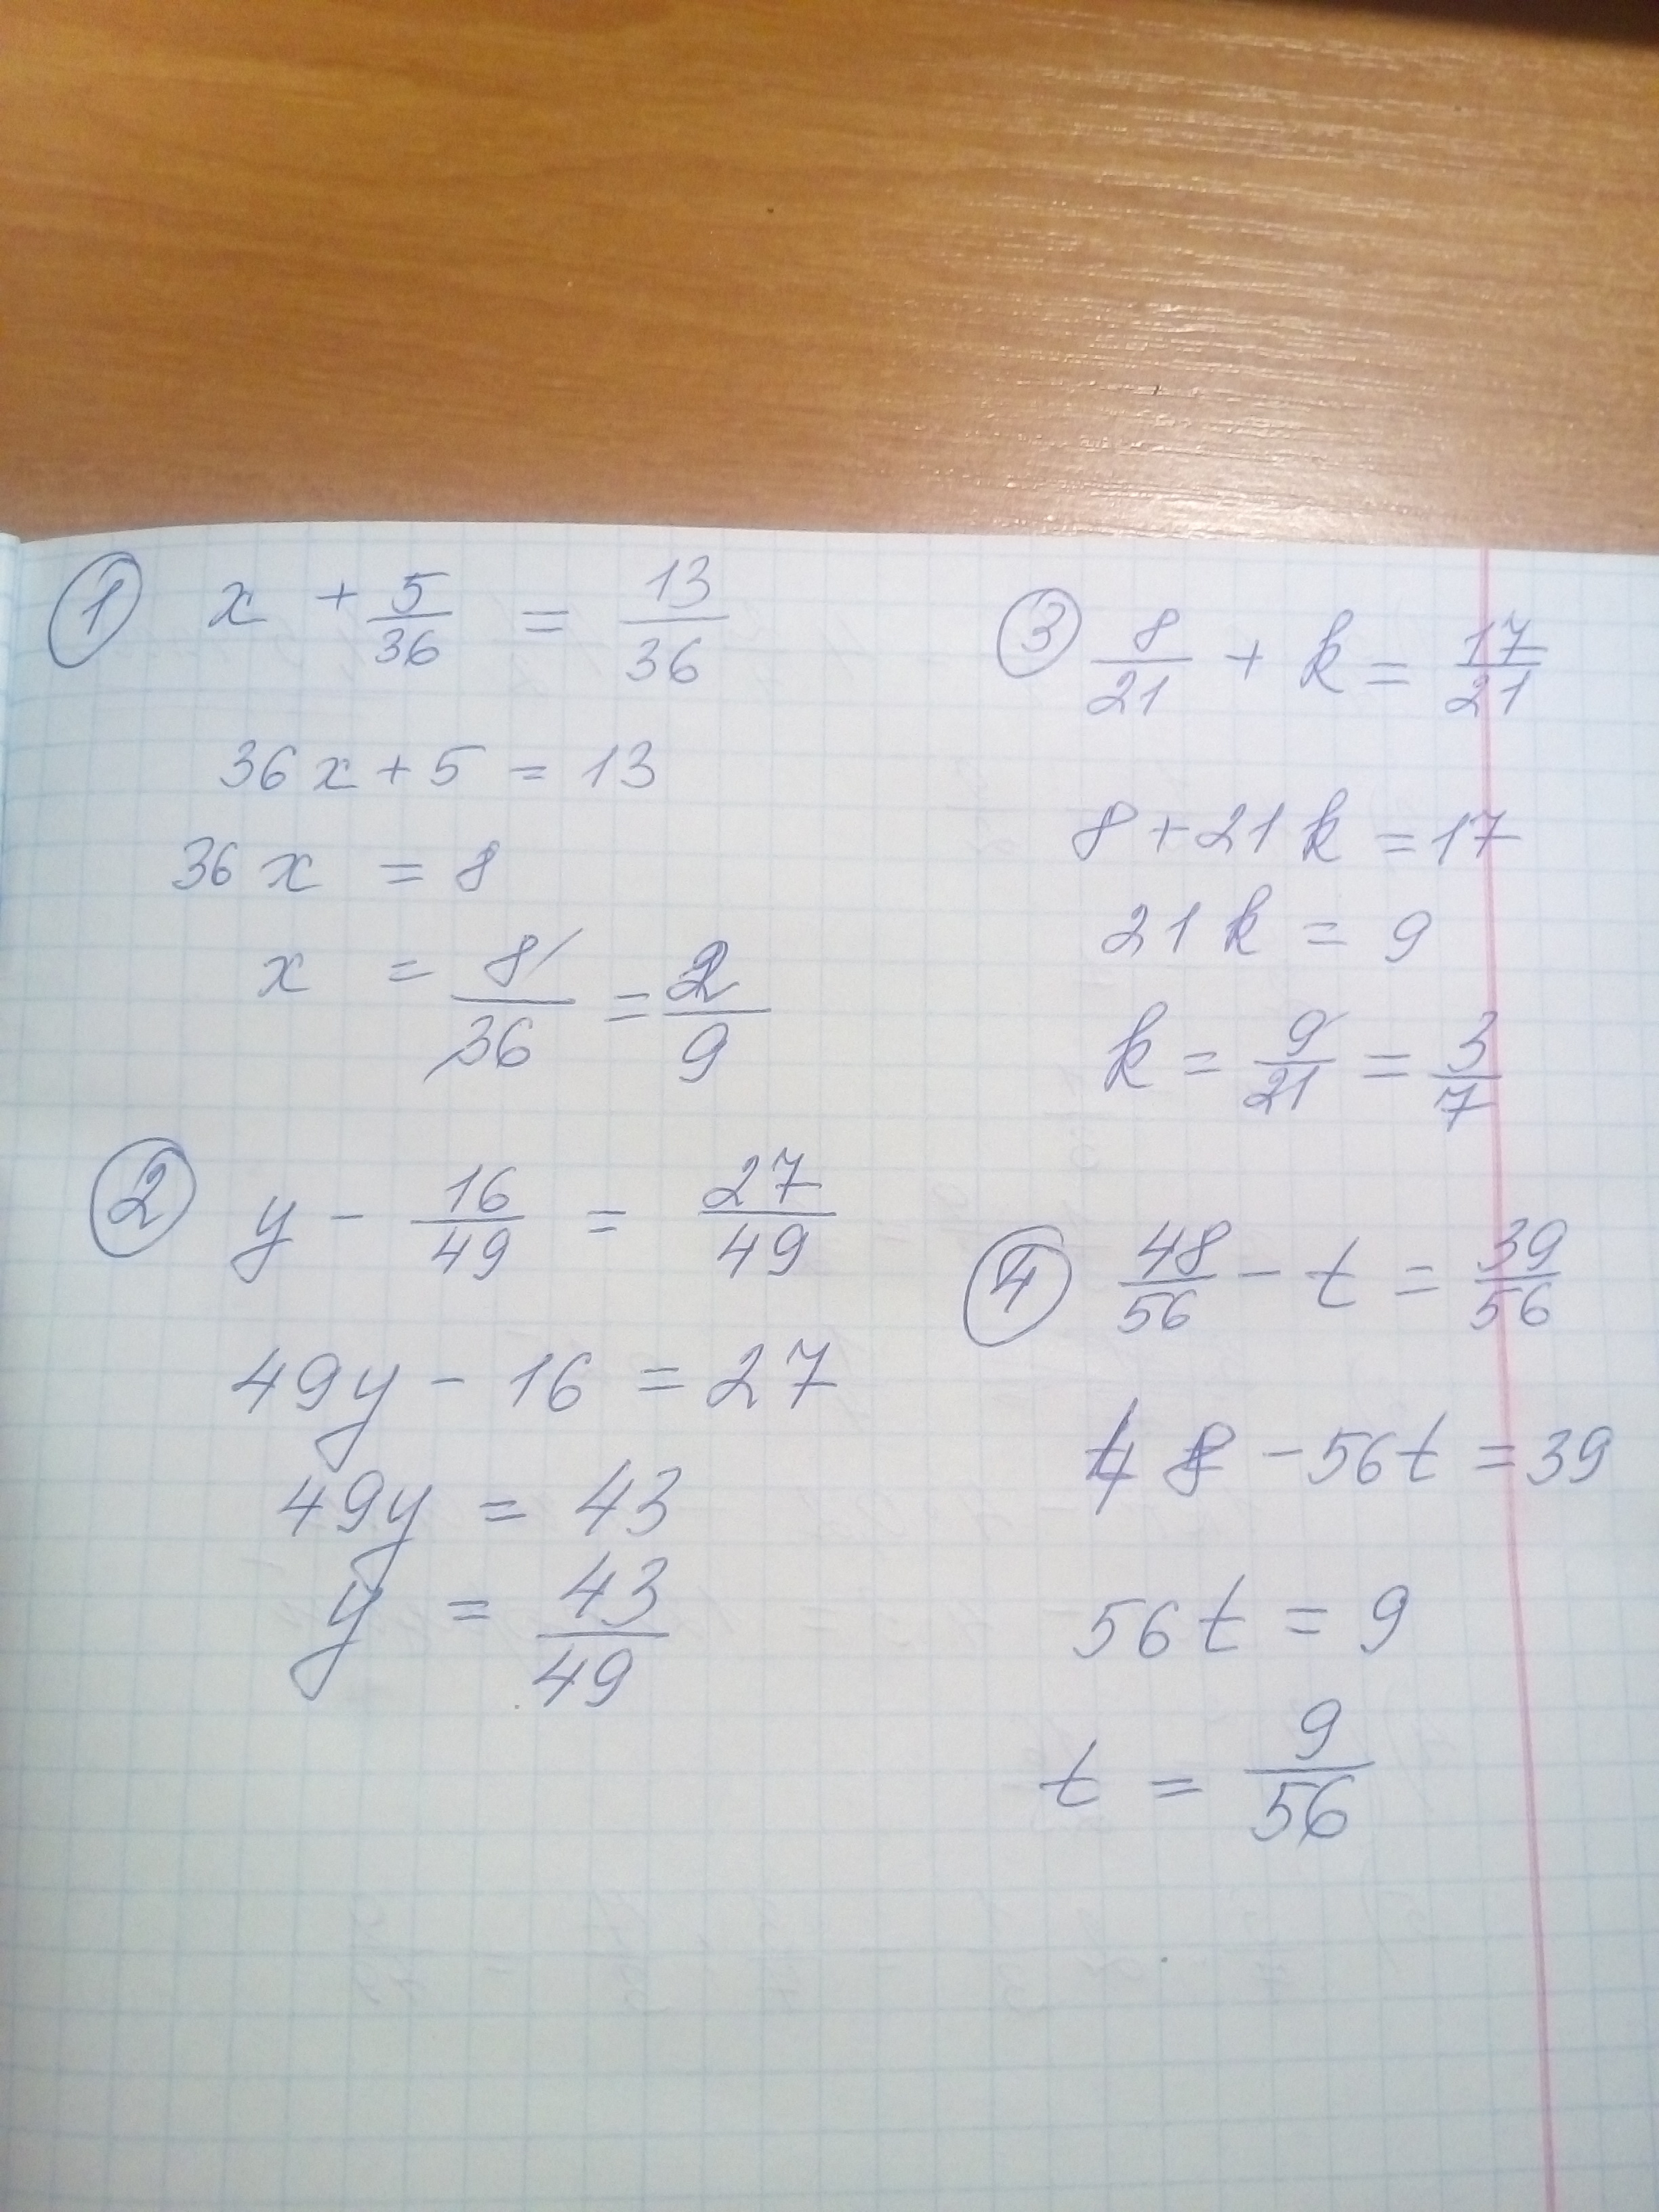 ① x + 5/36 = 13/36
36x + 5 = 13
36x = 8
x = 8/36 = 2/9
② y - 16/49 = 27/49
49y - 16 = 27
49y = 43
y = 43/49
③ 8/21 + k = 17/21
8 + 21k = 17
21k = 9
k = 9/21 = 3/7
④ 48/56 - t = 39/56
48 - 56t = 39
56t = 9
t = 9/56